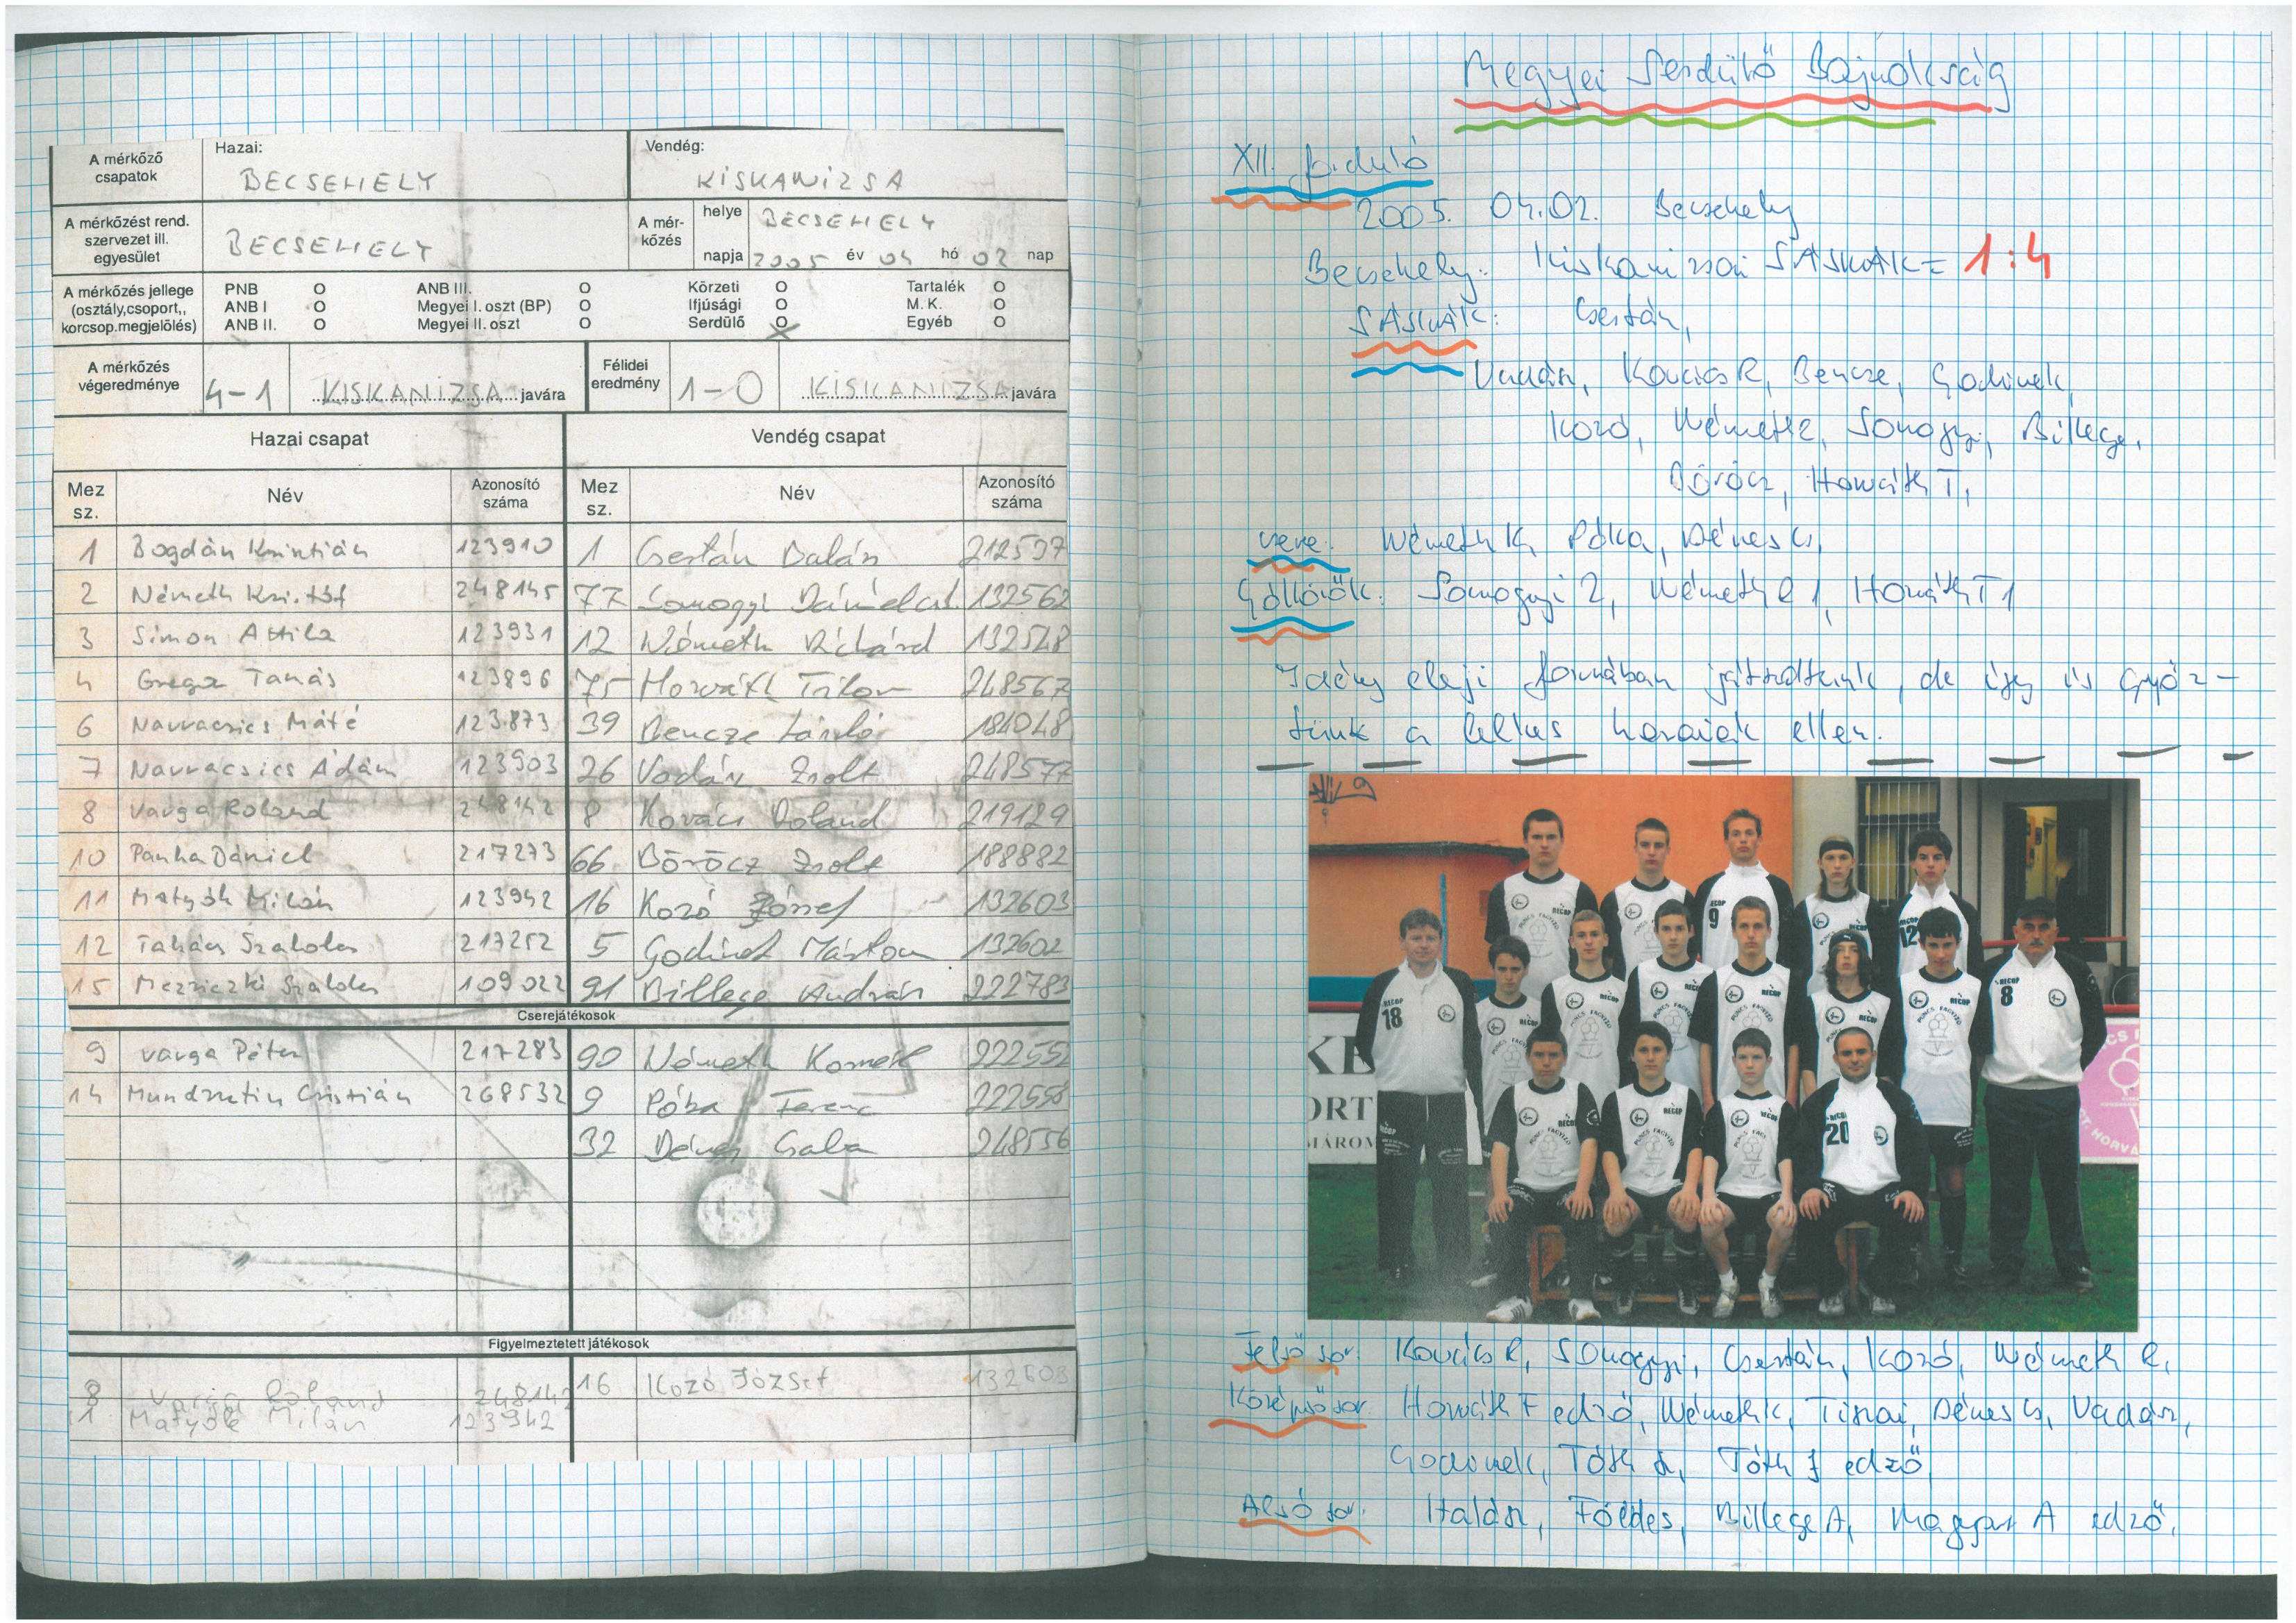 A mérkőző csapatok
Hazai:
BECSEHELY
Vendég:
KISKANIZSA
A mérkőzést rend. szervezet ill. egyesület
BECSEHELY
A mér-
kőzés
helye BECSEHELY
napja 2005 év 04 hó 02 nap
A mérkőzés jellege
(osztály,csoport,,
korcsop.megjelölés)
PNB O ANB III. O Körzeti O Tartalék O
ANB I O Megyei I. oszt (BP) O Ifjúsági O M. K. O
ANB II. O Megyei II. oszt O Serdülő O Egyéb O
A mérkőzés
végeredménye
4-1 KISKANIZSA javára
Félidei
eredmény
1-0 KISKANIZSA javára
Hazai csapat Vendég csapat
Mez sz. Név Azonosító száma Mez sz. Név Azonosító száma
1 Bogdán Krisztián 123910 1 Csertán Balázs 212597
2 Németh Kristóf 248145 77 Somogyi Dániel 132562
3 Simon Attila 123931 12 Németh Richárd 132548
4 Grega Tamás 123896 75 Horváth Tibor 248567
6 Navracsics Máté 123873 39 Bencze László 184048
7 Navracsics Ádám 123903 26 Vadász Zsolt 248577
8 Varga Roland 248142 8 Kovács Roland 219129
10 Panka Dániel 217273 66 Böröcz Zsolt 188882
11 Matyók Milán 123942 16 Kozó József 132603
12 Takács Szabolcs 217252 5 Godinek Márton 132602
15 Szabolcs 109022 91 Billege András 222783
Cserejátékosok
9 Varga Péter 217283 90 Németh Kornél 222552
14 Cristián 268532 9 Póka Ferenc 222558
32 Dénes Csaba 248556
Figyelmeztetett játékosok
8 Varga Roland 248142 16 Kozó József 132603
1 Matyók Milán 123942
Megyei Serdülő Bajnokság
XII. forduló
2005. 04.02. Becsehely
Becsehely: Kiskanizsai SÁSKÁK = 1:4
SÁSKÁK: Csertán,
Vadász, Kovács R, Bencze, Godinek,
Kozó, Németh R, Somogyi, Billege,
Böröcz, Horváth T,
csere: Németh K, Póka, Dénes Cs,
Góllövők: Somogyi 2, Németh R 1, Horváth T 1
Idény eleji formában játszottunk, de így is győz-
tünk a lelkes hazaiak ellen.
Felső sor: Kovács R, Somogyi, Csertán, Kozó, Németh R,
Középső sor: Horváth F edző, Németh K, Tisnai, Dénes Cs, Vadász,
Godinek, Tóth Á, Tóth J edző,
Alsó sor: Halász, Földes, Billege A, Magyar A edző,